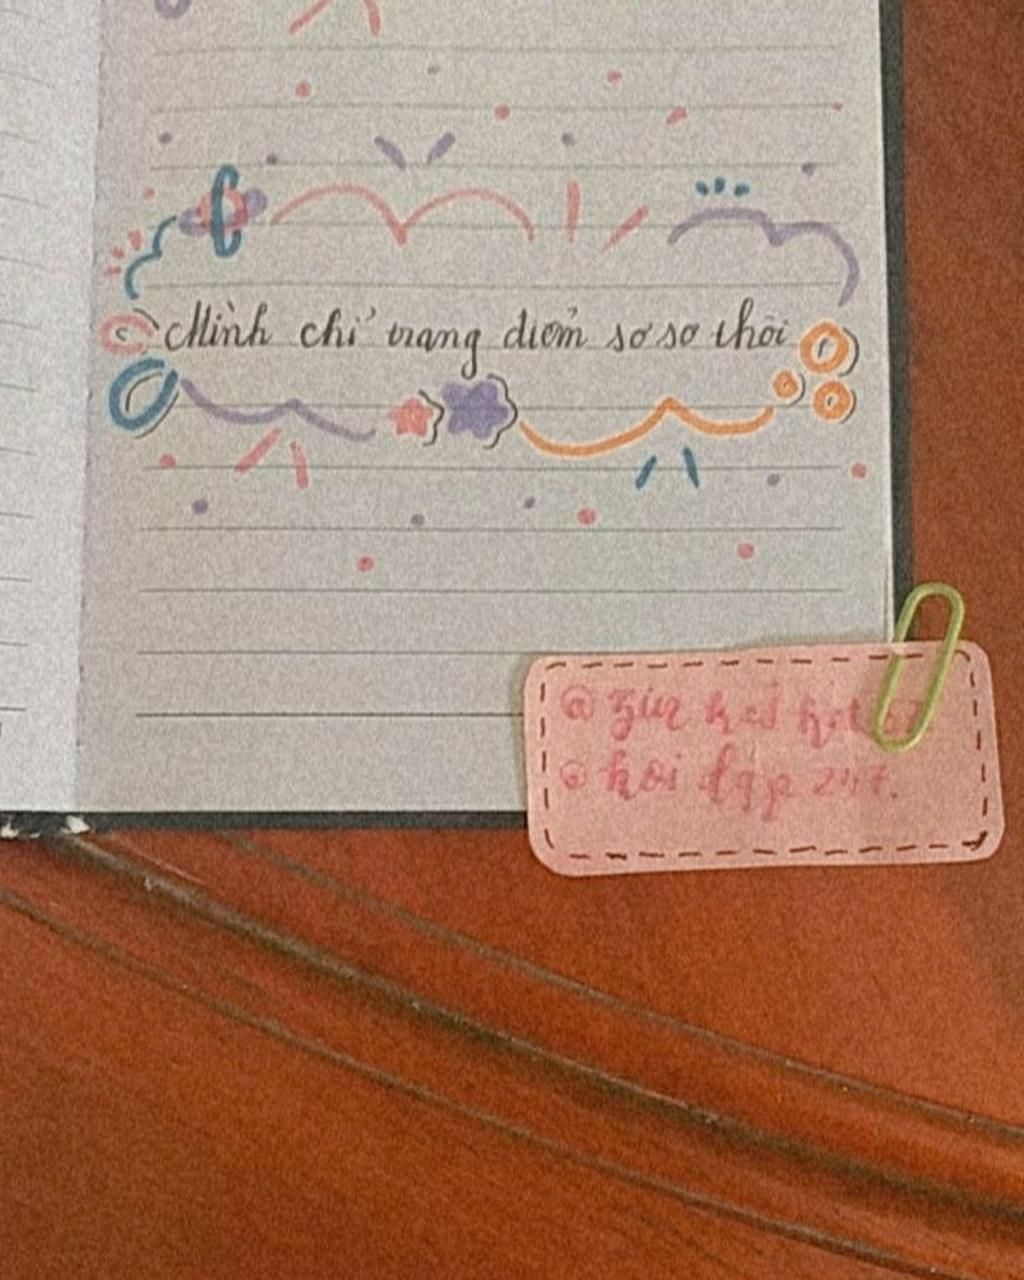 Mình chỉ trang điểm sơ sơ thôi
@
@ hỏi đáp 247.